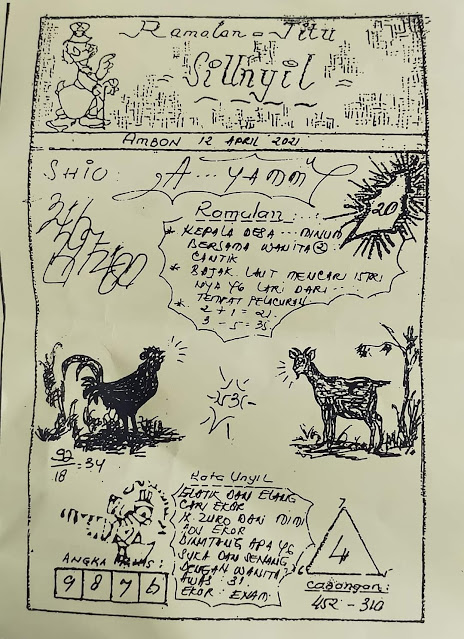 Ramalan = Jitu
SiUnyil
AMBON 12 APRIL 2021
SHIO:
A... YAMMM
20
Ramalan
* KEPALA DESA ... MINUM
BERSAMA WANITA 2
CANTIK
* BAJAK LAUT MENCARI ISTRI
NYA YG LARI DARI
* TEMPAT PELACURAN
2 + 1 = 21
3 - 5 = 35
92
18 = 34
Kata Unyil
GLATIK DAN ELANG
CARI EKOR
DAN MIMI
EKOR
BINATANG APA YG
SUKA DAN SENANG
DENGAN WANITA?
AWAS: 31
EKOR: ENAM
7
4
6
ANGKA
9 8 7 6
Cadangan:
452 - 310